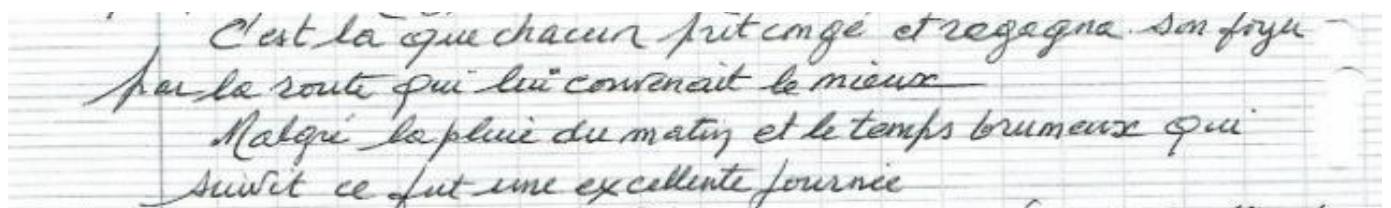 C'est là que chacun prit congé et regagna son foyer
par la route qui lui convenait le mieux
Malgré la pluie du matin et le temps brumeux qui
suivit ce fut une excellente journée